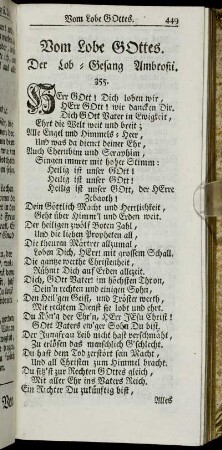 Vom Lobe GOttes. 449
Vom Lobe GOttes.
Der Lob-Gesang Ambrosii.
255.
HErr GOtt! Dich loben wir,
HErr GOtt! wir dancken Dir.
Dich GOtt Vater in Ewigkeit,
Ehrt die Welt weit und breit;
Alle Engel und Himmels-Heer,
Und was da dienet deiner Ehr,
Auch Cherubim und Seraphim,
Singen immer mit hoher Stimm:
Heilig ist unser GOtt!
Heilig ist unser GOtt!
Heilig ist unser GOtt, der HErre
Zebaoth!
Dein Göttlich Macht und Herrlichkeit,
Geht über Himm'l und Erden weit.
Der heiligen zwölf Boten Zahl,
Und die lieben Propheten all,
Die theuren Märtrer allzumal,
Loben Dich, HErr! mit grossem Schall.
Die gantze werthe Christenheit,
Rühmt Dich auf Erden allezeit.
Dich, GOtt Vater im höchsten Thron,
Dein'n rechten und einigen Sohn,
Den Heil'gen Geist, und Tröster werth,
Mit rechtem Dienst sie lobt und ehrt.
Du Kön'g der Ehr'n, HErr JEsu Christ!
GOtt Vaters ew'ger Sohn Du bist.
Der Jungfrau Leib nicht hast verschmäht,
Zu erlösen das menschlich G'schlecht.
Du hast dem Tod zerstört sein Macht,
Und all Christen zum Himmel bracht.
Du sitz'st zur Rechten GOttes gleich,
Mit aller Ehr ins Vaters Reich.
Ein Richter Du zukünftig bist,
Alles